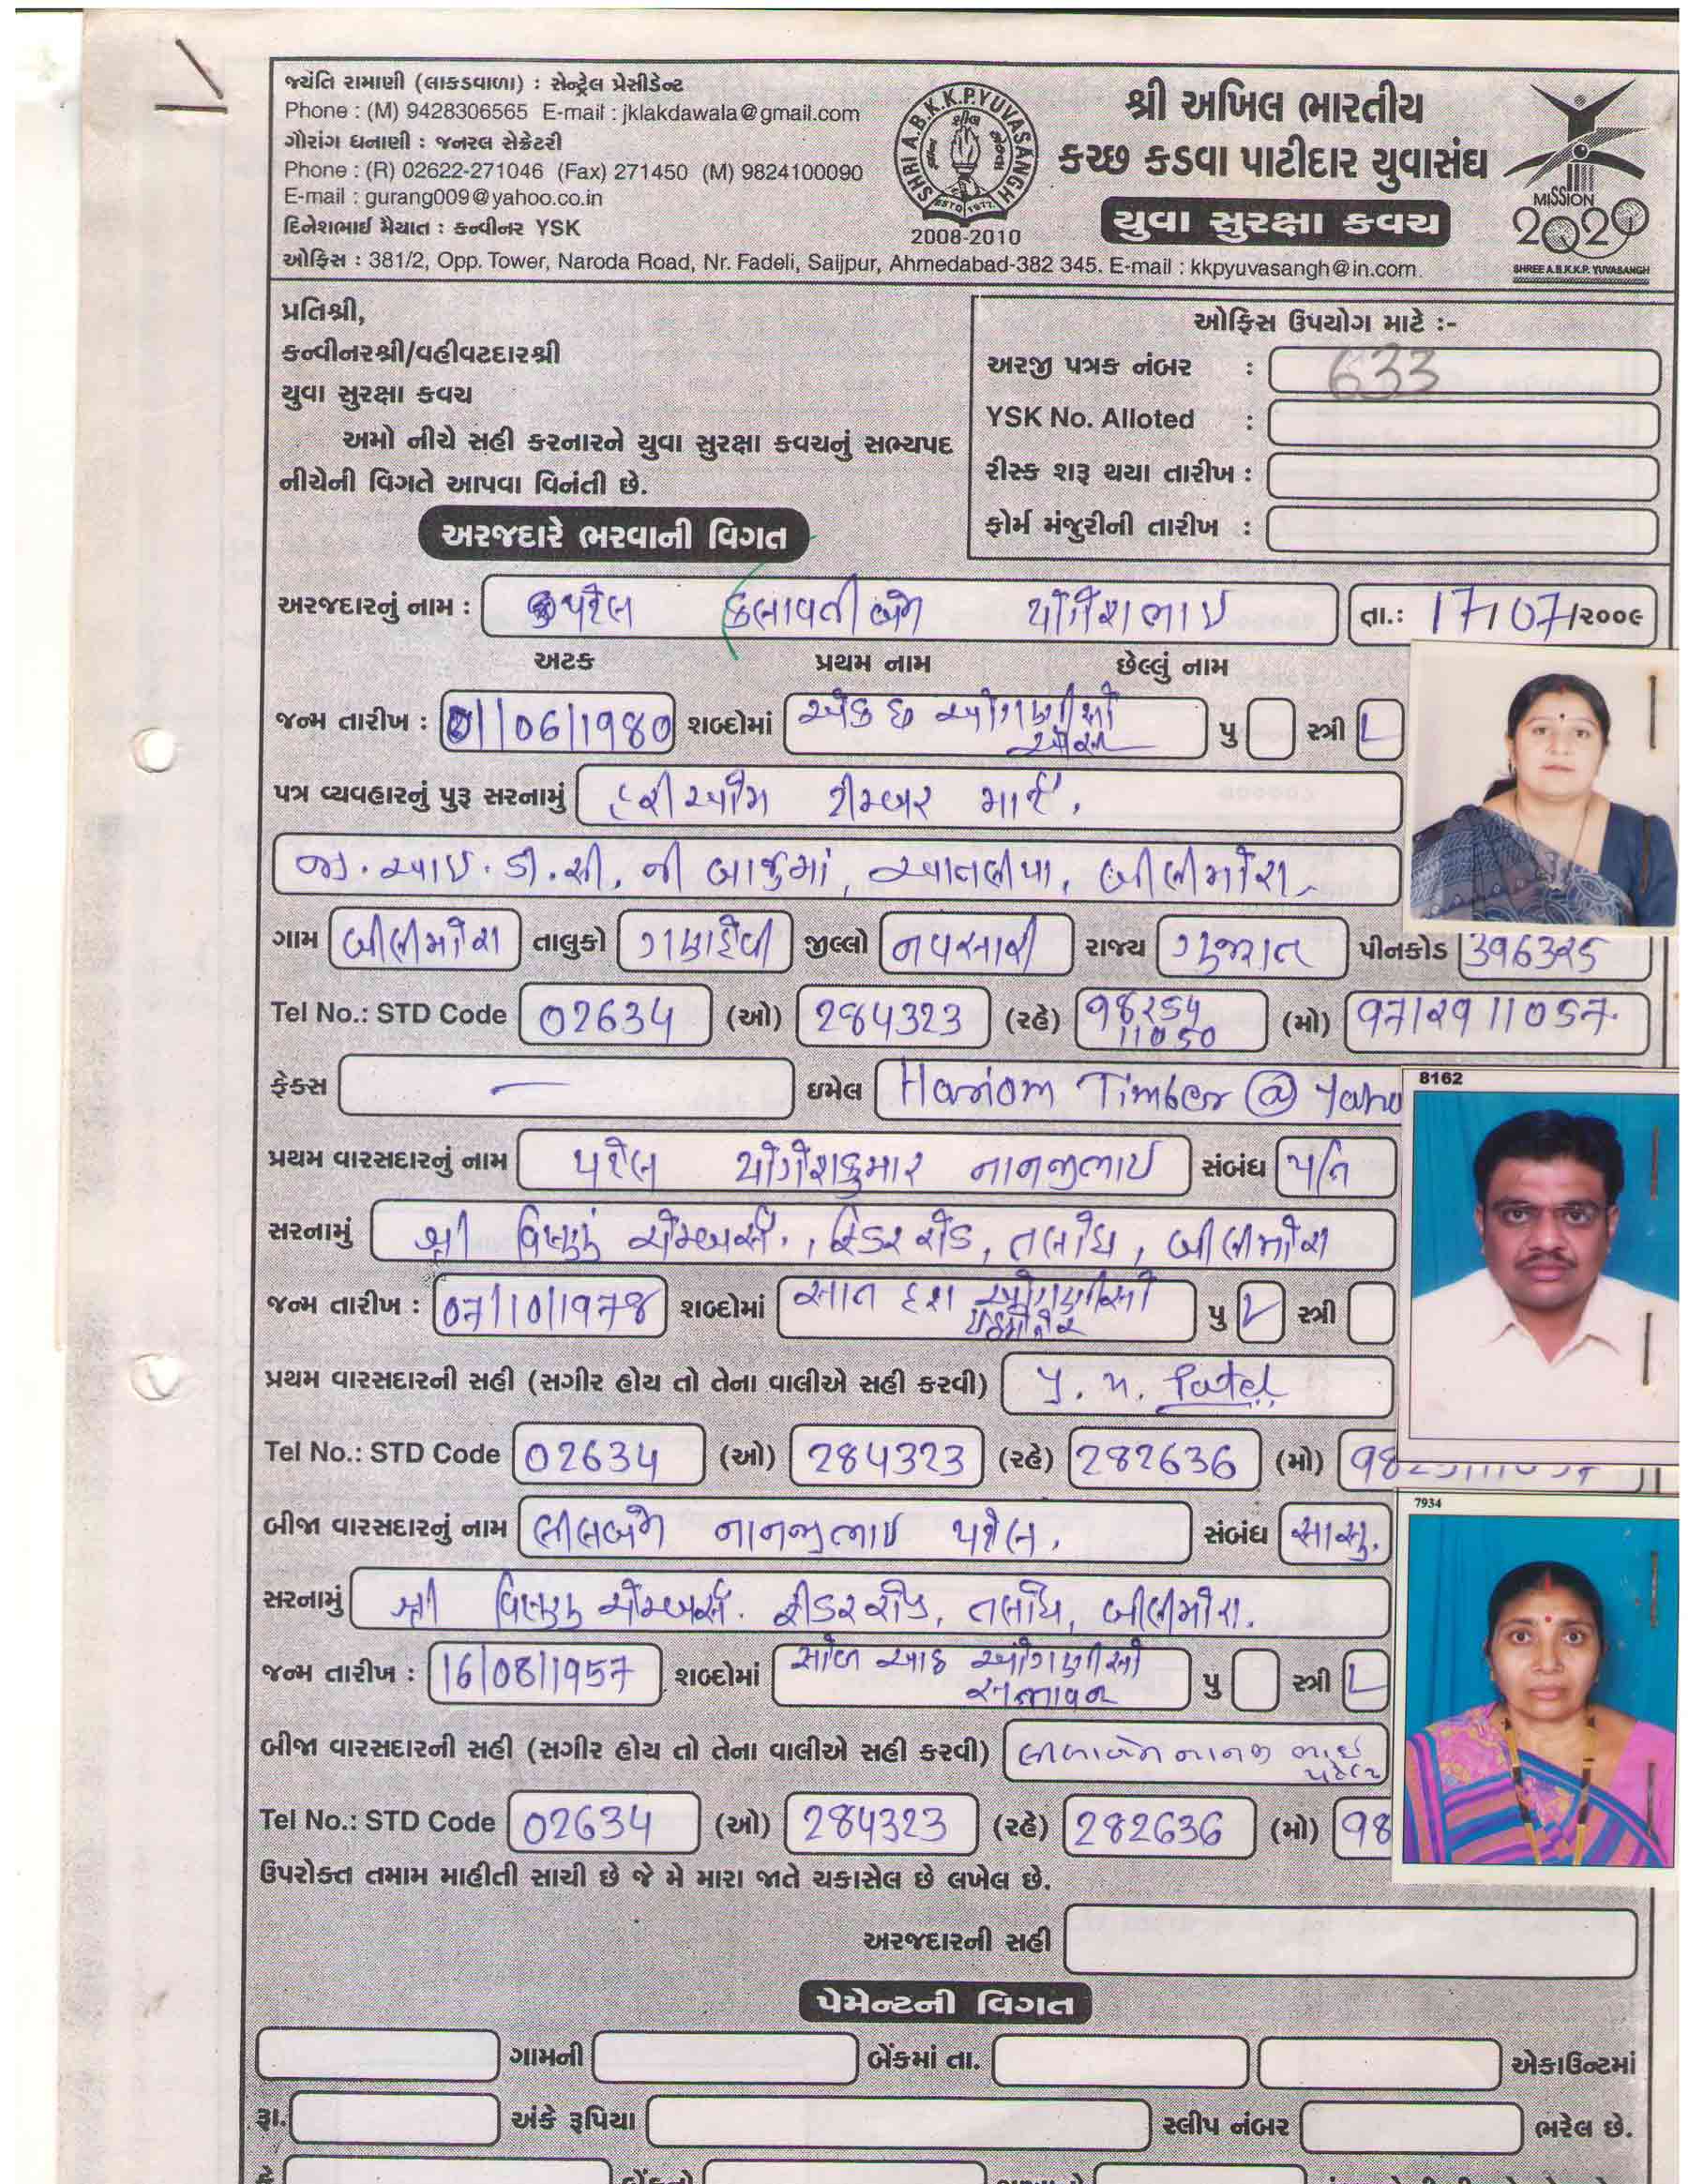 જ્યંતિ રામાણી (લાકડવાળા) : સેન્ટ્રેલ પ્રેસીડેન્ટ
Phone : (M) 9428306565 E-mail : jklakdawala@gmail.com
ગૌરાંગ ધનાણી : જનરલ સેક્રેટરી
Phone : (R) 02622-271046 (Fax) 271450 (M) 9824100090
E-mail : gurang009@yahoo.co.in
દિનેશભાઈ મૈયાત : કન્વીનર YSK
SHRI A.B.K.K.P.YUVASANGH
ESTD 1977
2008-2010
શ્રી અખિલ ભારતીય
કચ્છ કડવા પાટીદાર યુવાસંઘ
યુવા સુરક્ષા કવચ
MISSION
2020
SHREE A.B.K.K.P. YUVASANGH
ઓફિસ : 381/2, Opp. Tower, Naroda Road, Nr. Fadeli, Saijpur, Ahmedabad-382 345. E-mail : kkpyuvasangh@in.com.
પ્રતિશ્રી,
કન્વીનરશ્રી/વહીવટદારશ્રી
યુવા સુરક્ષા કવચ
અમો નીચે સહી કરનારને યુવા સુરક્ષા કવચનું સભ્યપદ
નીચેની વિગતે આપવા વિનંતી છે.
ઓફિસ ઉપયોગ માટે :-
અરજી પત્રક નંબર : 633
YSK No. Alloted :
રીસ્ક શરૂ થયા તારીખ :
ફોર્મ મંજુરીની તારીખ :
અરજદારે ભરવાની વિગત
અરજદારનું નામ : પટેલ કલાવતીબેન યોગેશભાઈ તા.: 17/07/૨૦૦૯
અટક પ્રથમ નામ છેલ્લું નામ
જન્મ તારીખ : 01/06/1980 શબ્દોમાં એક છ ઓગણીસો પુ સ્ત્રી
પત્ર વ્યવહારનું પુરૂ સરનામું હરીઓમ ટીમ્બર માર્ટ,
જી.આઈ.ડી.સી. ની બાજુમાં, આતલીયા, બીલીમોરા
ગામ બીલીમોરા તાલુકો ગણદેવી જીલ્લો નવસારી રાજ્ય ગુજરાત પીનકોડ 396325
Tel No.: STD Code 02634 (ઓ) 284323 (રહે) 98254 11050 (મો) 9712911057
ફેક્સ — ઇમેલ Hariom Timber @ Yaho
8162
પ્રથમ વારસદારનું નામ પટેલ યોગેશકુમાર નાનજીભાઈ સંબંધ પતિ
સરનામું શ્રી વિષ્ણુ ચેમ્બર્સ, ફિડર રોડ, તલોધ, બીલીમોરા
જન્મ તારીખ : 07/10/1978 શબ્દોમાં સાત દશ ઓગણીસો પુ સ્ત્રી
પ્રથમ વારસદારની સહી (સગીર હોય તો તેના વાલીએ સહી કરવી) Y. N. Patel
Tel No.: STD Code 02634 (ઓ) 284323 (રહે) 282636 (મો) 98
7934
બીજા વારસદારનું નામ લીલબેન નાનજીભાઈ પટેલ. સંબંધ સાસુ.
સરનામું શ્રી વિષ્ણુ ચેમ્બર્સ. ફીડર રોડ, તલોધ, બીલીમોરા.
જન્મ તારીખ : 16/08/1957 શબ્દોમાં સોળ આઠ ઓગણીસો સત્તાવન પુ સ્ત્રી
બીજા વારસદારની સહી (સગીર હોય તો તેના વાલીએ સહી કરવી) લીલાબેન નાનજી ભાઈ પટેલ
Tel No.: STD Code 02634 (ઓ) 284323 (રહે) 282636 (મો) 98
ઉપરોક્ત તમામ માહીતી સાચી છે જે મે મારા જાતે ચકાસેલ છે લખેલ છે.
અરજદારની સહી
પેમેન્ટની વિગત
ગામની બેંકમાં તા. એકાઉન્ટમાં
રૂા. અંકે રૂપિયા સ્લીપ નંબર ભરેલ છે.